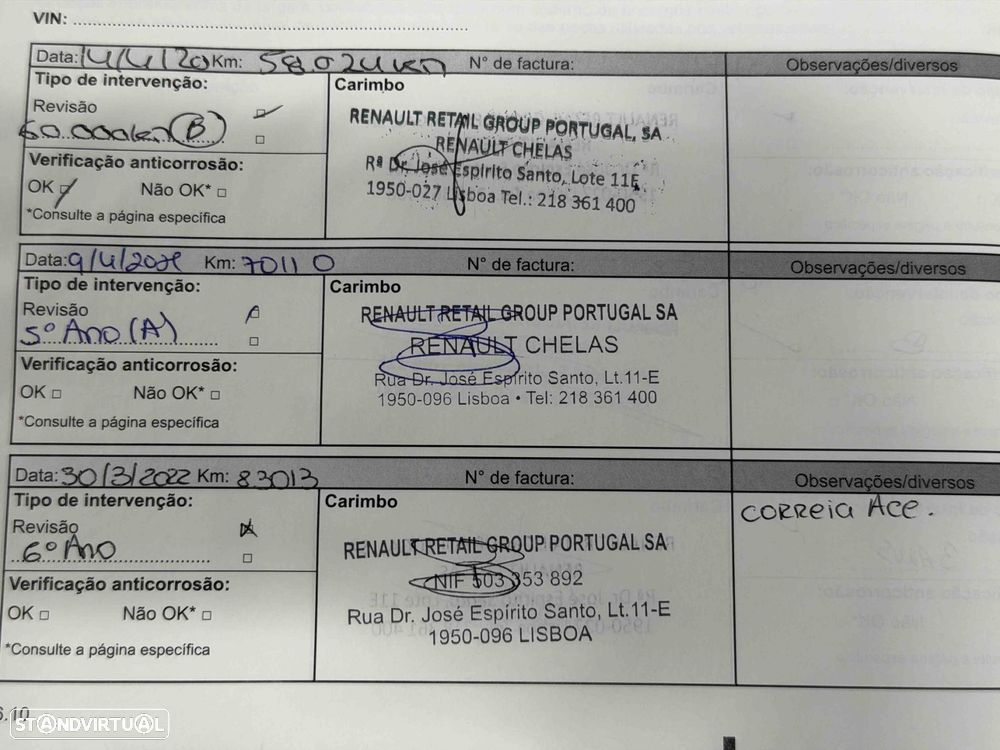 VIN:
Data: 14/4/20 Km: 58.024 km N° de factura: Observações/diversos
Tipo de intervenção: Carimbo
Revisão
60.000km (B)
RENAULT RETAIL GROUP PORTUGAL, SA
RENAULT CHELAS
Rª Dr. José Espírito Santo, Lote 11E
1950-027 Lisboa Tel.: 218 361 400
Verificação anticorrosão:
OK Não OK*
*Consulte a página específica
Data: 9/4/2021 Km: 70110 N° de factura: Observações/diversos
Tipo de intervenção: Carimbo
Revisão
5º Ano (A)
RENAULT RETAIL GROUP PORTUGAL SA
RENAULT CHELAS
Rua Dr. José Espírito Santo, Lt.11-E
1950-096 Lisboa • Tel: 218 361 400
Verificação anticorrosão:
OK Não OK*
*Consulte a página específica
Data: 30/3/2022 Km: 83013 N° de factura: Observações/diversos
Tipo de intervenção: Carimbo
Correia Ace.
Revisão
6º Ano
RENAULT RETAIL GROUP PORTUGAL SA
NIF 503 353 892
Rua Dr. José Espírito Santo, Lt.11-E
1950-096 LISBOA
Verificação anticorrosão:
OK Não OK*
*Consulte a página específica
6.10
STANDVIRTUAL